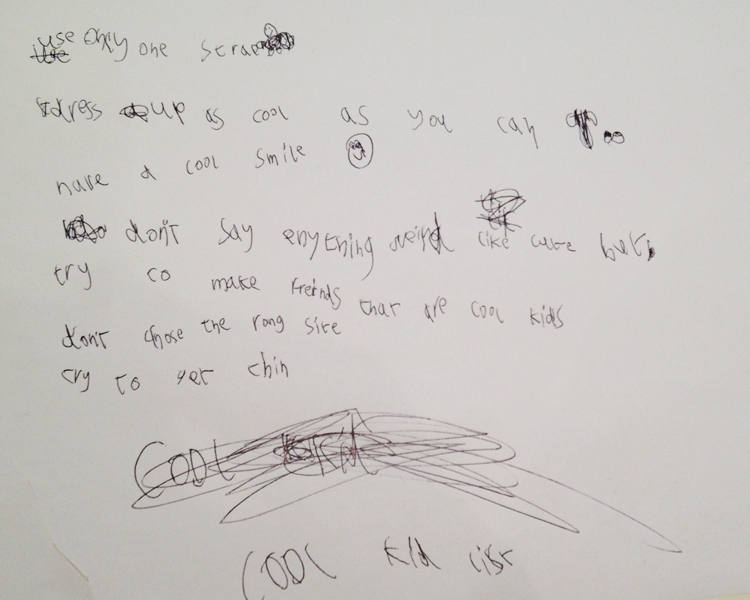 use only one strap
dress up as cool as you can
have a cool smile
don't say enything weird like cute butt
try to make freinds that are cool kids
don't chose the rong site
try to get thin
COOL
COOL kid list